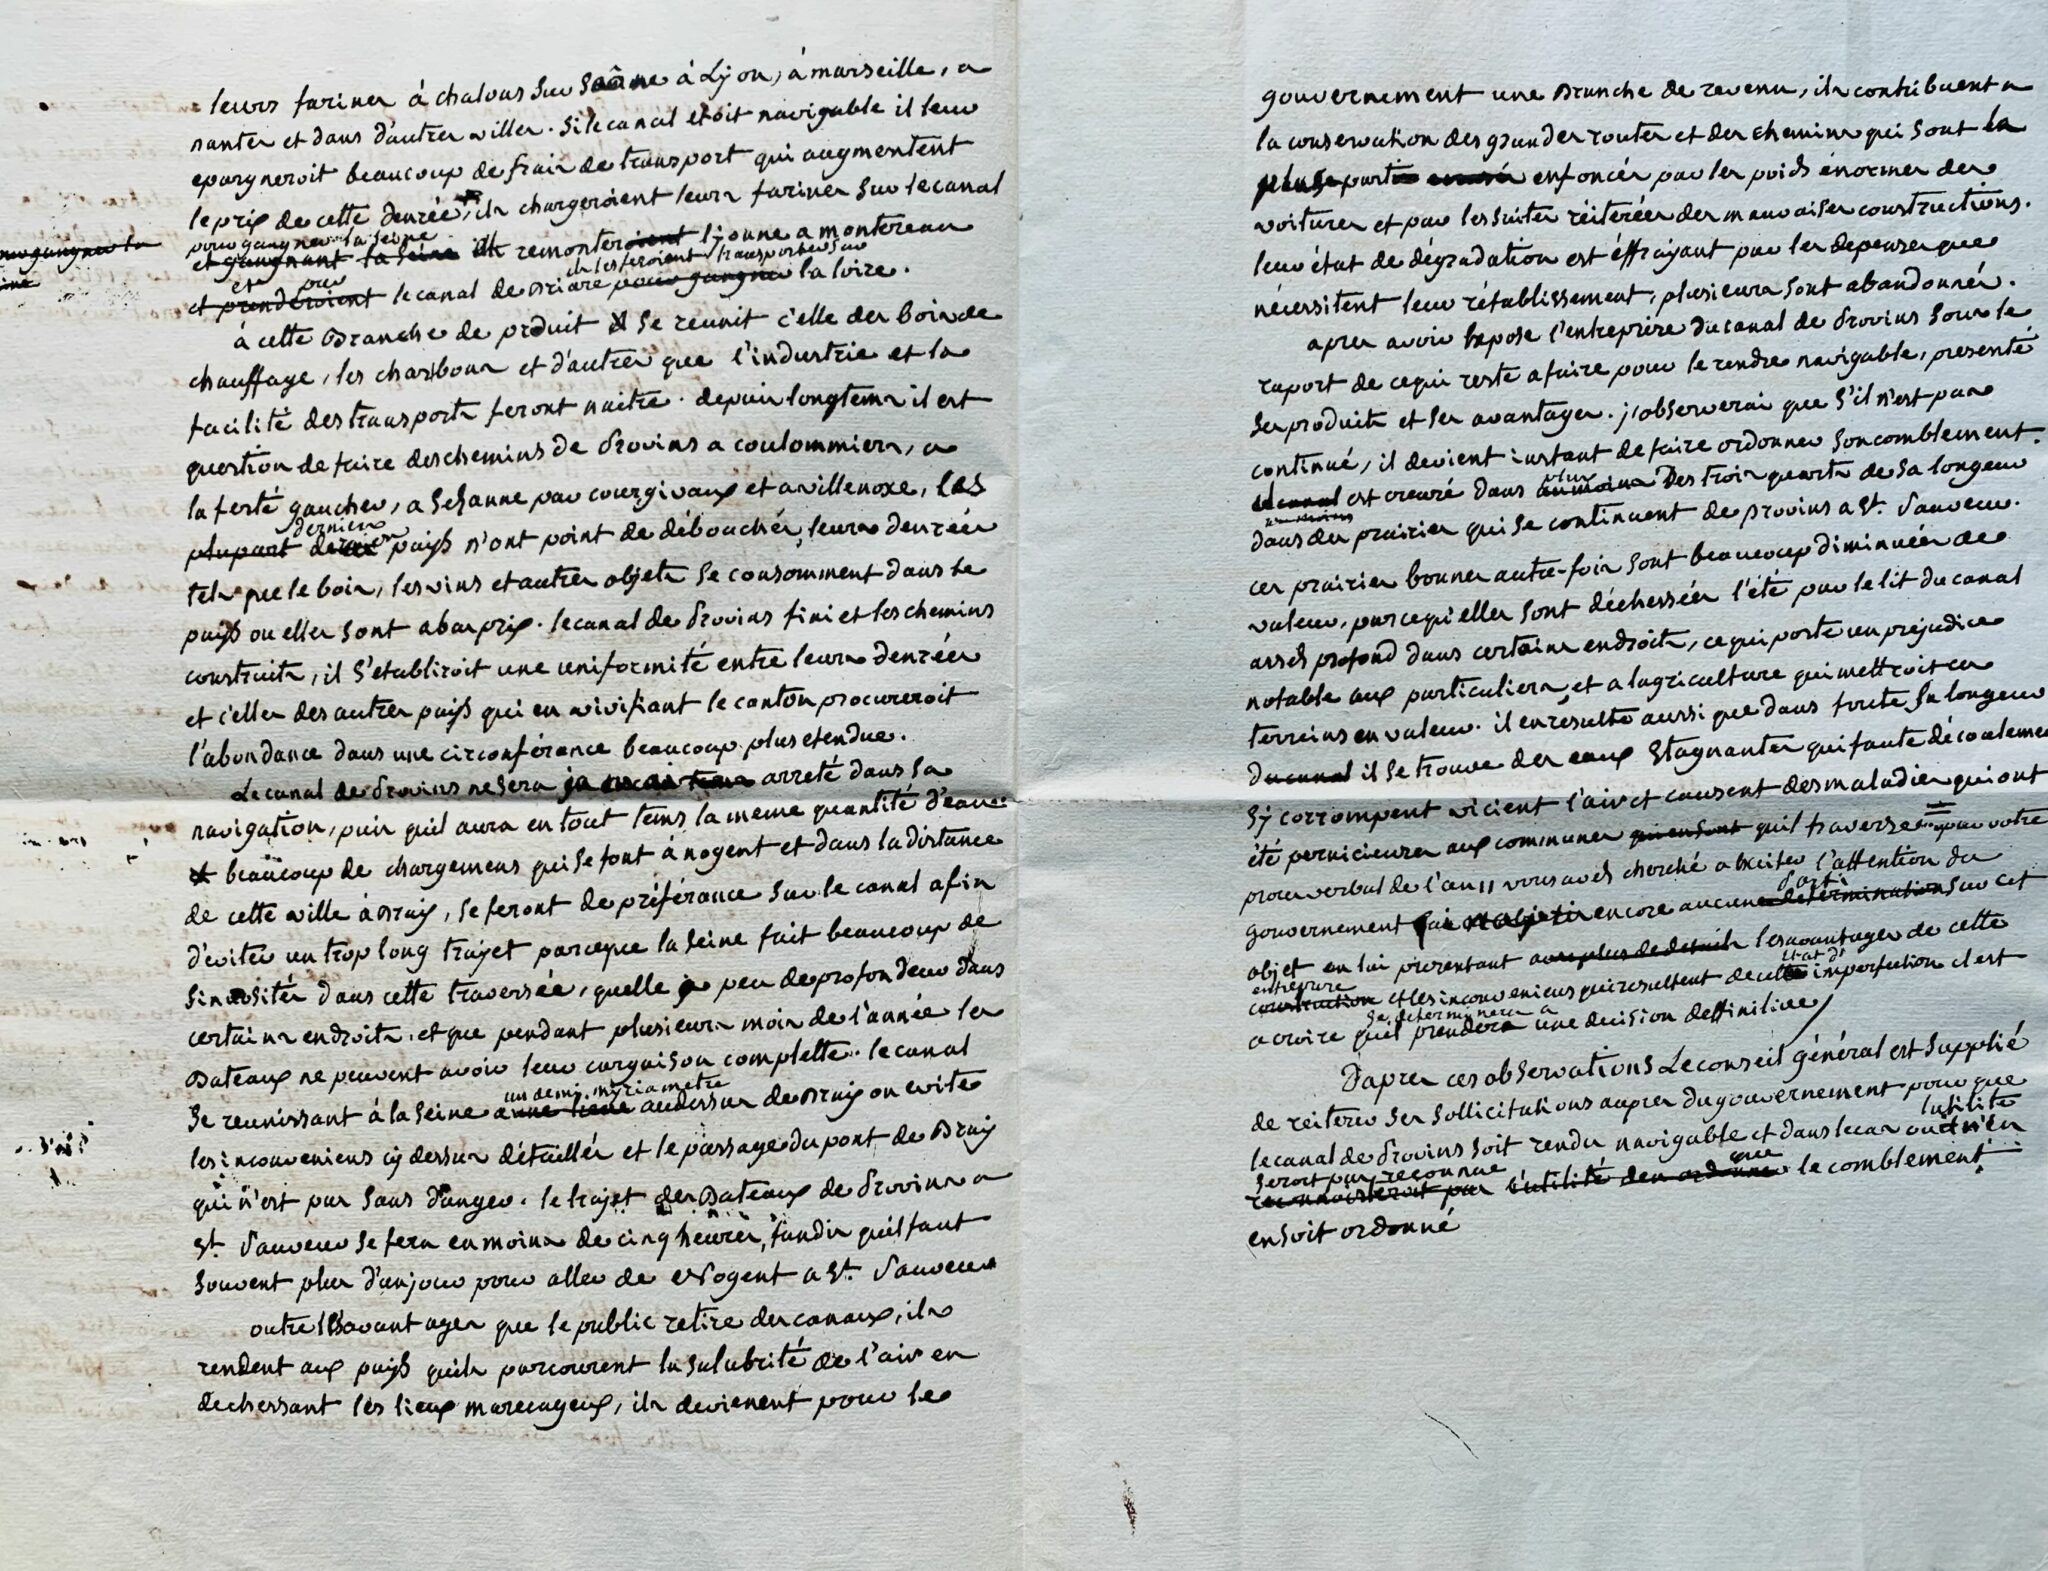 leurs farines à chalons sur Saône à Lyon, à marseille, a
nantes et dans d'autres villes. si le canal etoit navigable il leur
epargneroit beaucoup de frais de transport qui augmentent
le prix de cette denrée, ils chargeroient leurs farines sur le canal
pour gangner la seine
pour gangner la
et gangnant la seine remonteroient lionne a montereau
ils les feroient transporter sur
et par
et prenderoient le canal de Briare pour gangner la loire.
à cette Branche de produit se reunit c'elle des bois de
chauffage, les charbons et d'autres que l'industrie et la
facilité des transports feront naitre. depuis longtems il est
question de faire des chemins de Provins a coulommiers, a
la ferté gaucher, a Sezanne par courgivaux et a villenoxe, les
derniers
plupart de pays n'ont point de débouchés, leurs denrées
tels que le bois, les vins et autres objets se consomment dans le
pays ou elles sont a bas prix. le canal de Provins fini et les chemins
construits, il s'etabliroit une uniformité entre leurs denrées
et c'elles des autres pays qui en vivifiant le canton procureroit
l'abondance dans une circonférence beaucoup plus etendue.
Le canal de Provins ne sera arreté dans sa
navigation, puis qu'il aura en tout tems la meme quantité d'eau
beaucoup de chargemens qui se font a nogent et dans la distance
de cette ville à Bray, se feront de préférance sur le canal afin
d'éviter un trop long trajet parceque la seine fait beaucoup de
sinuosités dans cette traversée, quelle a peu de profondeur dans
certains endroits, et que pendant plusieurs mois de l'année les
Bateaux ne peuvent avoir leur cargaison complette. le canal
un demi myriametre
se reunissant à la seine a une lieue audessus de Bray on evite
les inconveniens cy dessus détaillés et le passage du pont de Bray
qui n'est pas sans danger. le trajet des Bateaux de Provins a
St. Sauveur se fera en moins de cinq heures, tandis qu'il faut
souvent plus d'un jour pour aller de Nogent a St. Sauveur
outre les avantages que le public retire des canaux, ils
rendent aux pays quils parcourent la salubrité de l'air en
dechessant les lieux marecageux, ils devienent pour le
gouvernement une Branche de revenu, ils contribuent a
la conservation des grandes routes et des chemins qui sont la
plus part enfoncés par les poids énormes des
voitures et par les suites réiterées des mauvaises constructions.
leur état de dégradation est éffrayant par les depenses que
nécessitent leur rétablissement, plusieurs sont abandonnés.
apres avoir exposé l'entreprise du canal de Provins sous le
raport de ce qui reste a faire pour le rendre navigable, presenté
ses produits et ses avantages. j'observerai que s'il n'est pas
continué, il devient instant de faire ordonner son comblement.
plus
le canal est creusé dans au moins Des trois quarts de sa longeur
au moins
dans des prairies qui se continuent de provins a St. Sauveur.
ces prairies bonnes autre-fois sont beaucoup diminuées de
valeur, parcequ'elles sont déchessées l'été par le lit du canal
assés profond dans certains endroits, ce qui porte un préjudice
notable aux particuliers et a lagriculture qui mettroit ces
terreins en valeur. il en résulte aussi que dans toute sa longeur
du canal il se trouve des eaux stagnantes qui faute découlement
sy corrompent vicient l'air et causent des maladies qui ont
été pernicieuses aux communes qui en sont quil traverse = par votre
proces verbal de l'an 11 vous avés cherché a exciter l'attention du
parti
gouvernement encore aucune determination sur cet
objet en lui presentant avec plus de details les avantages de cette
entreprise
etat d'
construction et les inconveniens qui resultent de cette imperfection il est
se determinera a
a croire qu'il prendera une decision deffinitive /
D'apres ces observations Le conseil général est supplié
de reiterer ses sollicitations aupres du gouvernement pour que
l'utilité
le canal de Provins soit rendu navigable et dans le cas ou n'en
seroit pas reconnue
que
reconnaiteroit pas l'utilité den ordonner le comblement
en soit ordonné